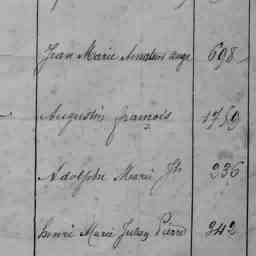 Jean Marie Amateur ange 698
Augustin françois 1759
Adolphe Marie Jh 236
henri Marie Julien Pierre 342